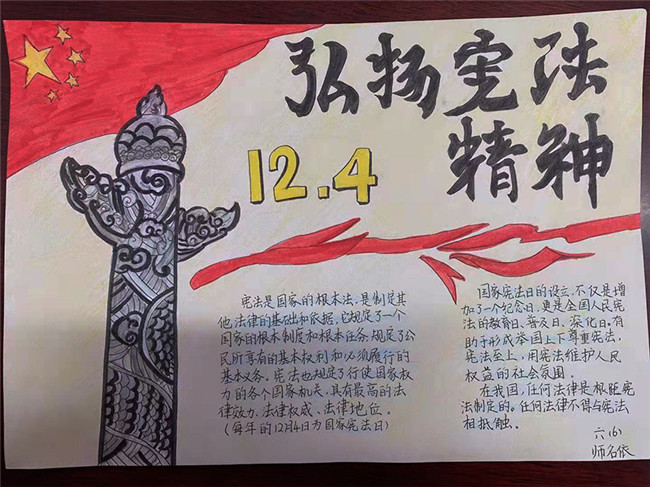 弘扬宪法
精神
12.4
宪法是国家的根本法，是制定其
他法律的基础和依据，它规定了一个
国家的根本制度和根本任务，规定了公
民所享有的基本权利和必须履行的
基本义务。宪法也规定了行使国家权
力的各个国家机关，具有最高的法
律效力、法律权威、法律地位。
(每年的12月4日为国家宪法日)
国家宪法日的设立，不仅是增
加了一个纪念日，更是全国人民宪
法的教育日、普及日、深化日。有
助于形成举国上下尊重宪法，
宪法至上，用宪法维护人民
权益的社会氛围。
在我国，任何法律是根距宪
法制定的。任何法律不得与宪法
相抵触。
六(6)
师名依